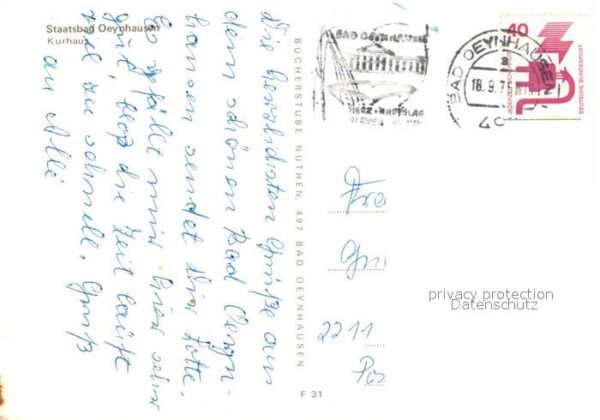 Staatsbad Oeynhausen
Kurhaus
Die herzlichsten Grüße aus
dem schönen Bad Oeyn-
hausen sendet Dir Lotte.
Es gefällt mir hier sehr
gut blos die Zeit läuft
viel zu schnell. Gruß
an Alle
BÜCHERSTUBE NÜTHEN. 497 BAD OEYNHAUSEN
F 31
BAD OEYNHAUSEN
HERZ
BAD OEYNHAUSEN
18.9.75
40
JEDERZEIT SICHERHEIT
DEUTSCHE BUNDESPOST
2211
privacy protection
Datenschutz